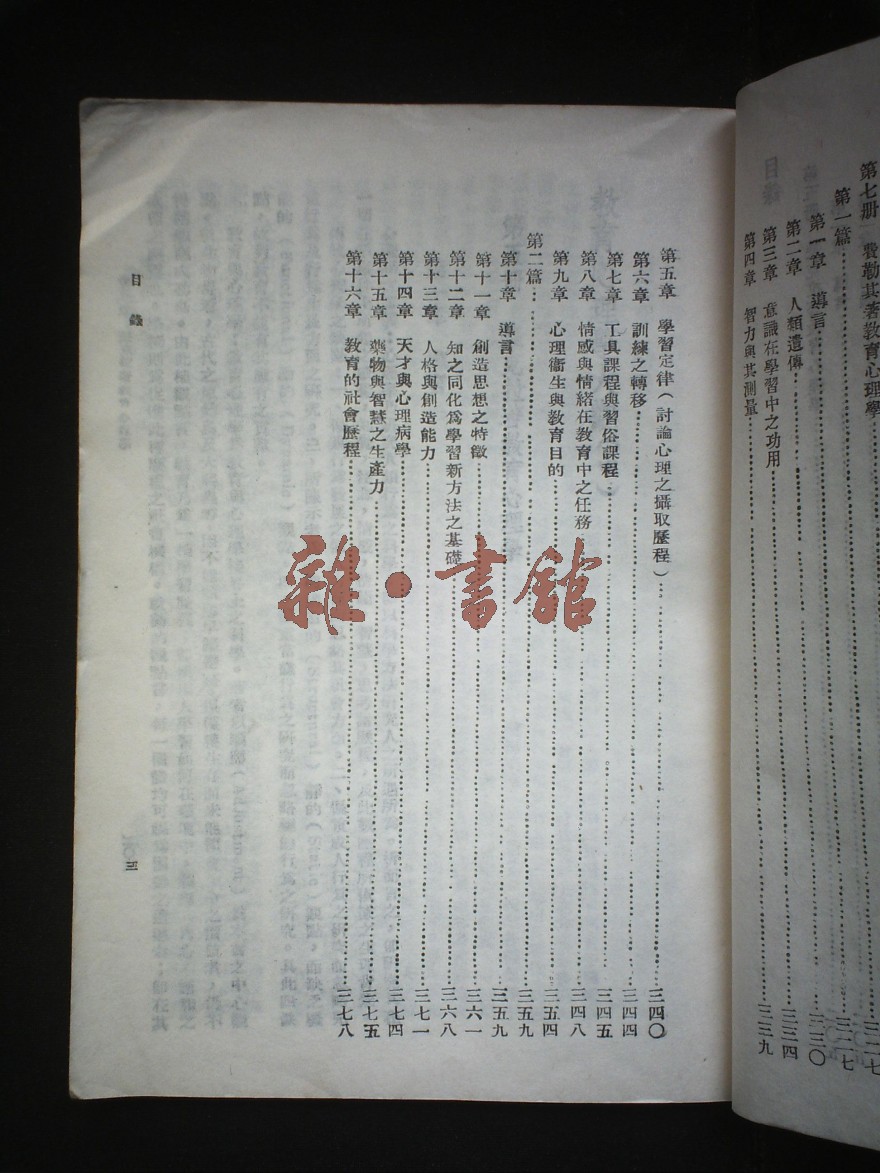 第七册 費勒其著教育心理學
第一篇……三二七
第一章 導言……三二七
第二章 人類遺傳……三三〇
第三章 意識在學習中之功用……三三四
第四章 智力與其測量……三三九
第五章 學習定律(討論心理之攝取歷程)……三四〇
第六章 訓練之轉移……三四四
第七章 工具課程與習俗課程……三四五
第八章 情感與情緒在教育中之任務……三四八
第九章 心理衞生與教育目的……三五四
第二篇……三五九
第十章 導言……三五九
第十一章 創造思想之特徵……三六一
第十二章 知之同化爲學習新方法之基礎……三六八
第十三章 人格與創造能力……三七一
第十四章 天才與心理病學……三七四
第十五章 藥物與智慧之生產力……三七五
第十六章 教育的社會歷程……三七八
目錄
三
雜·書館